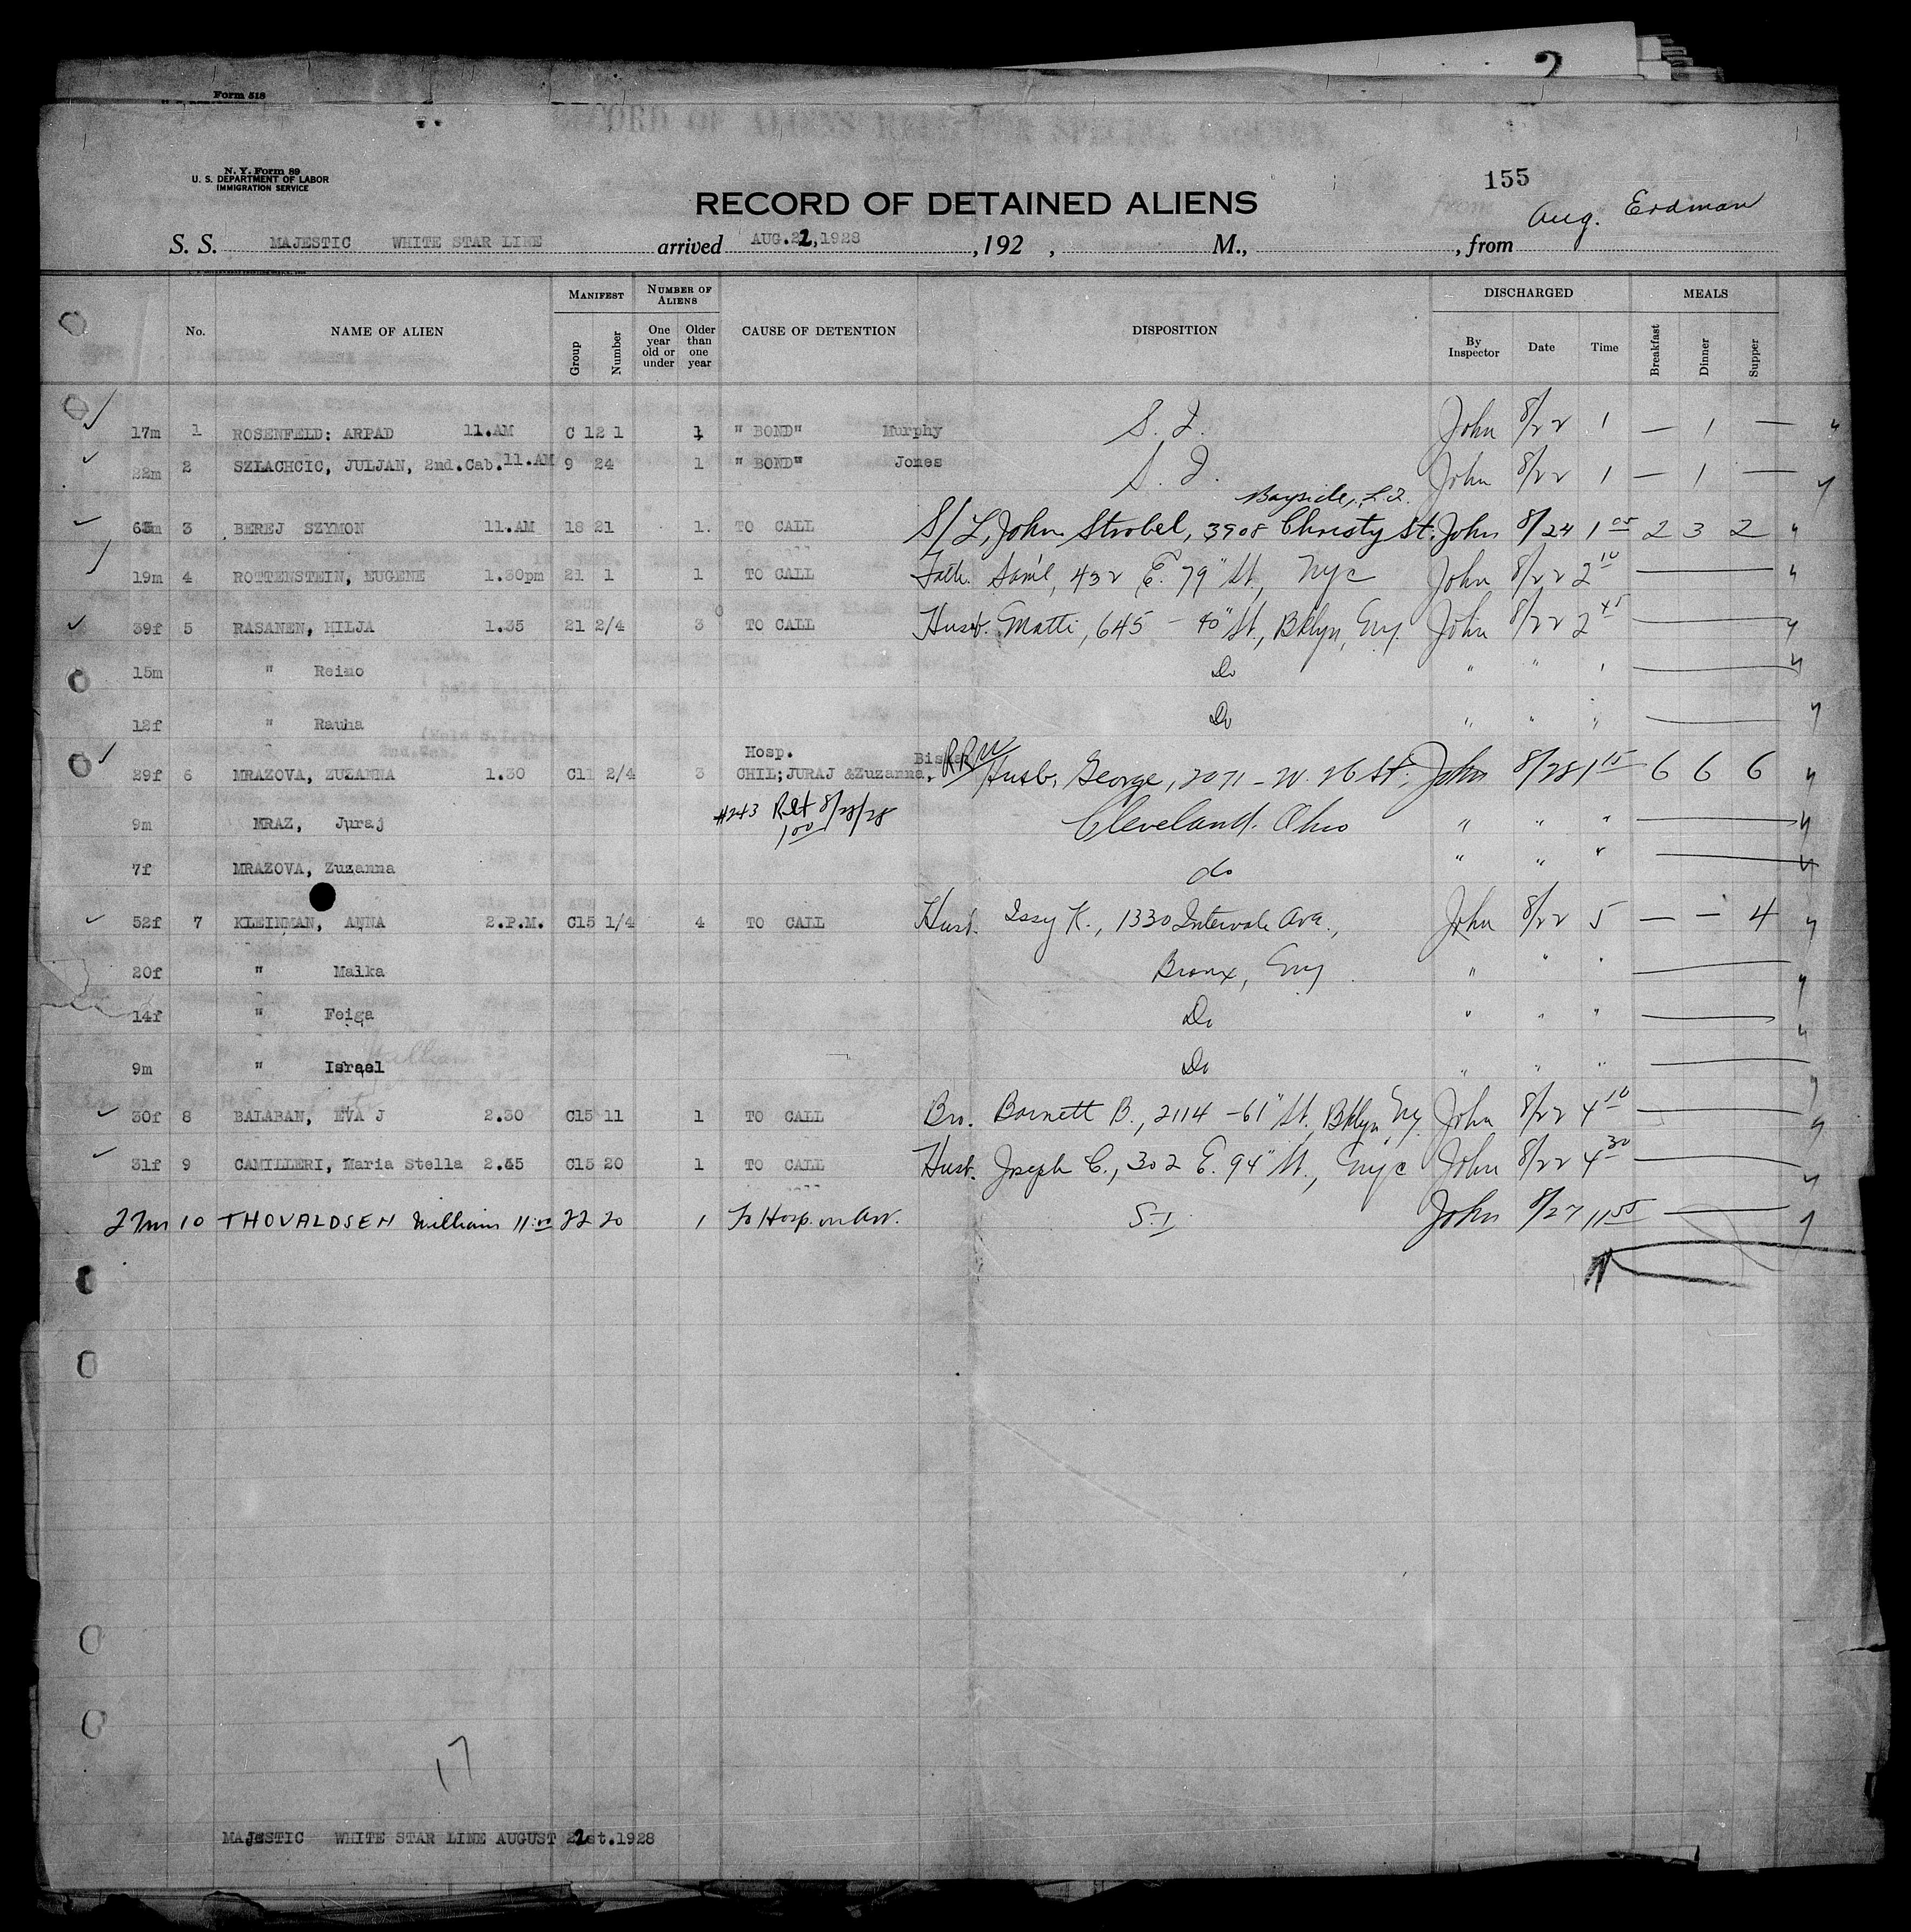 2
Form 518
N. Y. Form 89
U. S. DEPARTMENT OF LABOR
IMMIGRATION SERVICE
155
RECORD OF DETAINED ALIENS
Aug. Erdman
S. S. MAJESTIC WHITE STAR LINE arrived AUG. 22, 1928, 192 , M., , from
No. NAME OF ALIEN MANIFEST Group Number NUMBER OF ALIENS One year old or under Older than one year CAUSE OF DETENTION DISPOSITION DISCHARGED By Inspector Date Time MEALS Breakfast Dinner Supper
17m 1 ROSENFELD: ARPAD 11.AM C 12 1 1 " BOND" Murphy S. I. John 8/22 1 — 1 —
22m 2 SZLACHCIC, JULJAN, 2nd.Cab. 11.AM 9 24 1 " BOND" Jones S. I. John 8/22 1 — 1 —
Bayside, L.I.
63m 3 BEREJ SZYMON 11.AM 18 21 1. TO CALL S/L, John Strobel, 3908 Christy St. John 8/24 1 05 2 3 2
19m 4 ROTTENSTEIN, EUGENE 1.30pm 21 1 1 TO CALL Fath. Sam'l, 432 E. 79" St, Nyc John 8/22 2 10
39f 5 RASANEN, HILJA 1.35 21 2/4 3 TO CALL Husb. Matti, 645 - 40" St, Bklyn, Ny John 8/22 2 45
15m " Reino Do " " "
12f " Rauha Do " " "
29f 6 MRAZOVA, ZUZANNA 1.30 C11 2/4 3 Hosp. CHIL; JURAJ & Zuzanna, RRW Husb. George, 2071 - W. 26 St. John 8/28 1 15 6 6 6
9m MRAZ, Juraj #243 Rlt 8/28/28 1 00 Cleveland. Ohio " " "
7f MRAZOVA, Zuzanna do " " "
52f 7 KLEINMAN, ANNA 2.P.M. C15 1/4 4 TO CALL Husb. Issy K., 1330 Intervale Ave., John 8/22 5 — — 4
20f " Malka Bronx, Ny " " "
14f " Feiga Do " " "
9m " Israel Do " " "
30f 8 BALABAN, EVA J 2.30 C15 11 1 TO CALL Bro. Barnett B., 2114 - 61" St, Bklyn, Ny John 8/22 4 10
31f 9 CAMILLERI, Maria Stella 2.45 C15 20 1 TO CALL Husb. Joseph C., 302 E. 94" St., Nyc John 8/22 4 30
27m 10 THOVALDSEN William 11:00 22 20 1 To Hosp. on Arr. S-I John 8/27 11 55
17
MAJESTIC WHITE STAR LINE AUGUST 22st.1928